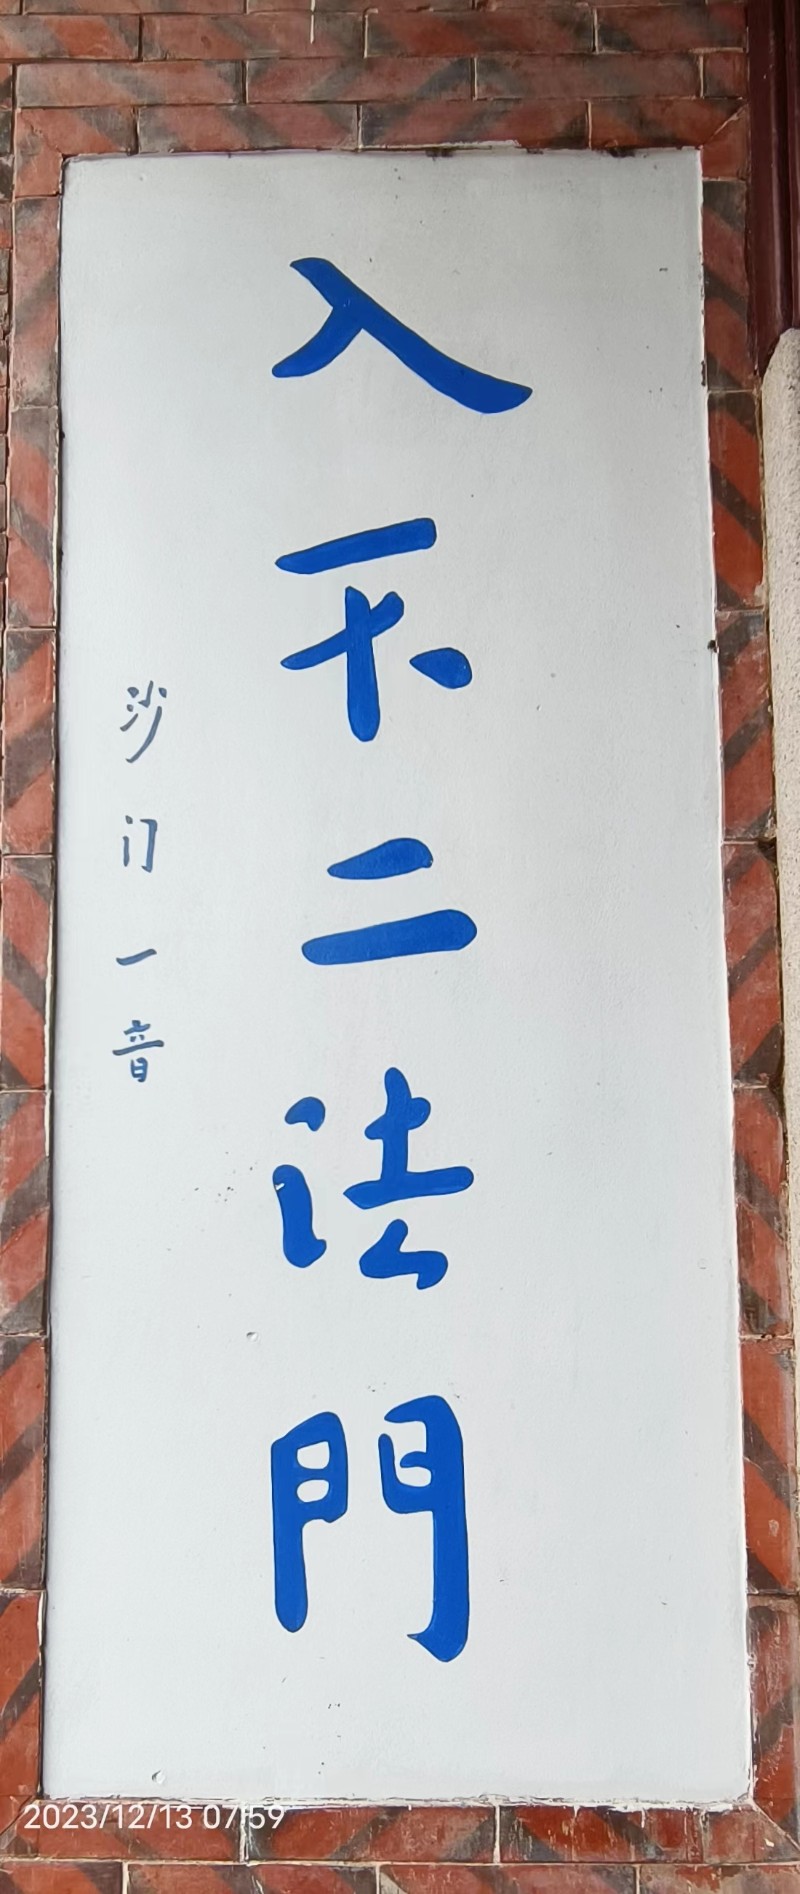 入不二法門
沙门一音
2023/12/13 07:59